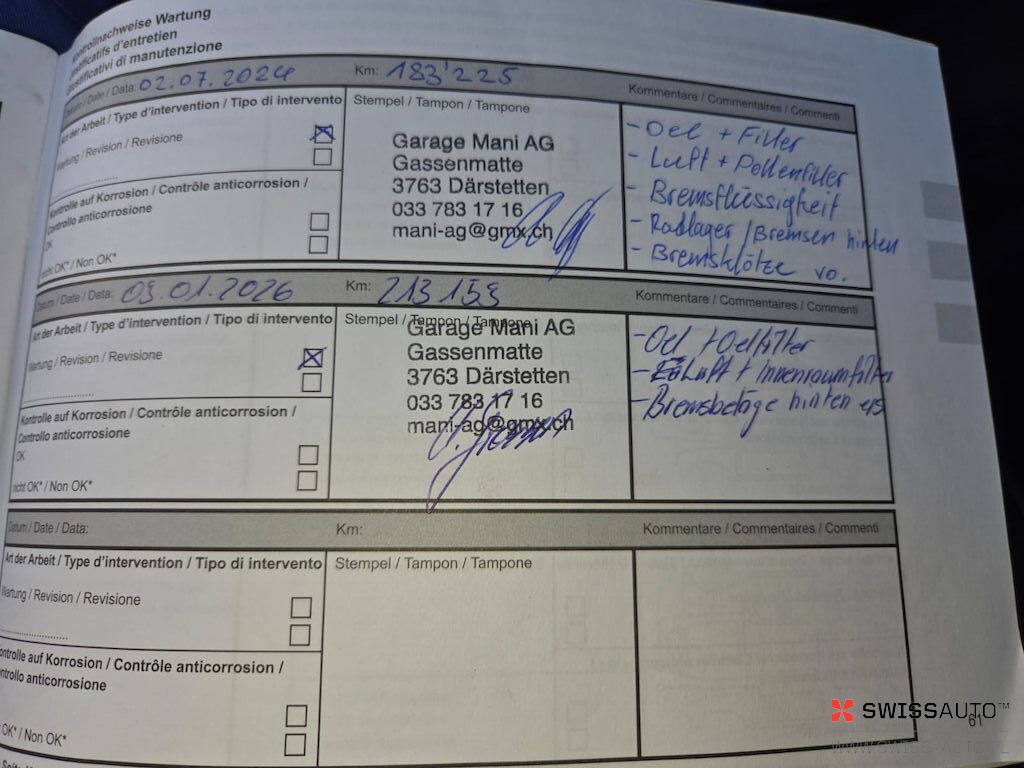 Kontrollnachweise Wartung
Justificatifs d'entretien
Giustificativi di manutenzione
Datum / Date / Data: 02.07.2024 Km: 183'225 Kommentare / Commentaires / Commenti
Art der Arbeit / Type d'intervention / Tipo di intervento
Wartung / Revision / Revisione
Stempel / Tampon / Tampone
Garage Mani AG
Gassenmatte
3763 Därstetten
033 783 17 16
mani-ag@gmx.ch
- Oel + Filter
- Luft + Pollenfilter
- Bremsflüssigkeit
- Radlager / Bremsen hinten
- Bremsklötze vo.
Kontrolle auf Korrosion / Contrôle anticorrosion /
Controllo anticorrosione
OK
nicht OK* / Non OK*
Datum / Date / Data: 09.01.2026 Km: 213 159 Kommentare / Commentaires / Commenti
Art der Arbeit / Type d'intervention / Tipo di intervento
Wartung / Revision / Revisione
Stempel / Tampon / Tampone
Garage Mani AG
Gassenmatte
3763 Därstetten
033 783 17 16
mani-ag@gmx.ch
- Oel + Oelfilter
- Luft + Innenraumfilter
- Bremsbeläge hinten ers
Kontrolle auf Korrosion / Contrôle anticorrosion /
Controllo anticorrosione
OK
nicht OK* / Non OK*
Datum / Date / Data: Km: Kommentare / Commentaires / Commenti
Art der Arbeit / Type d'intervention / Tipo di intervento
Wartung / Revision / Revisione
Stempel / Tampon / Tampone
Kontrolle auf Korrosion / Contrôle anticorrosion /
Controllo anticorrosione
OK* / Non OK*
61
SWISSAUTO™